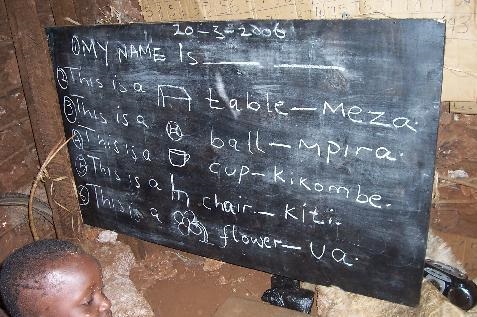 20-3-2006
① MY NAME Is____ ____
② This is a table-Meza.
③ This is a ball-Mpira.
④ This is a cup-Kikombe.
⑤ This is a chair-Kiti.
⑥ This is a flower-Ua.